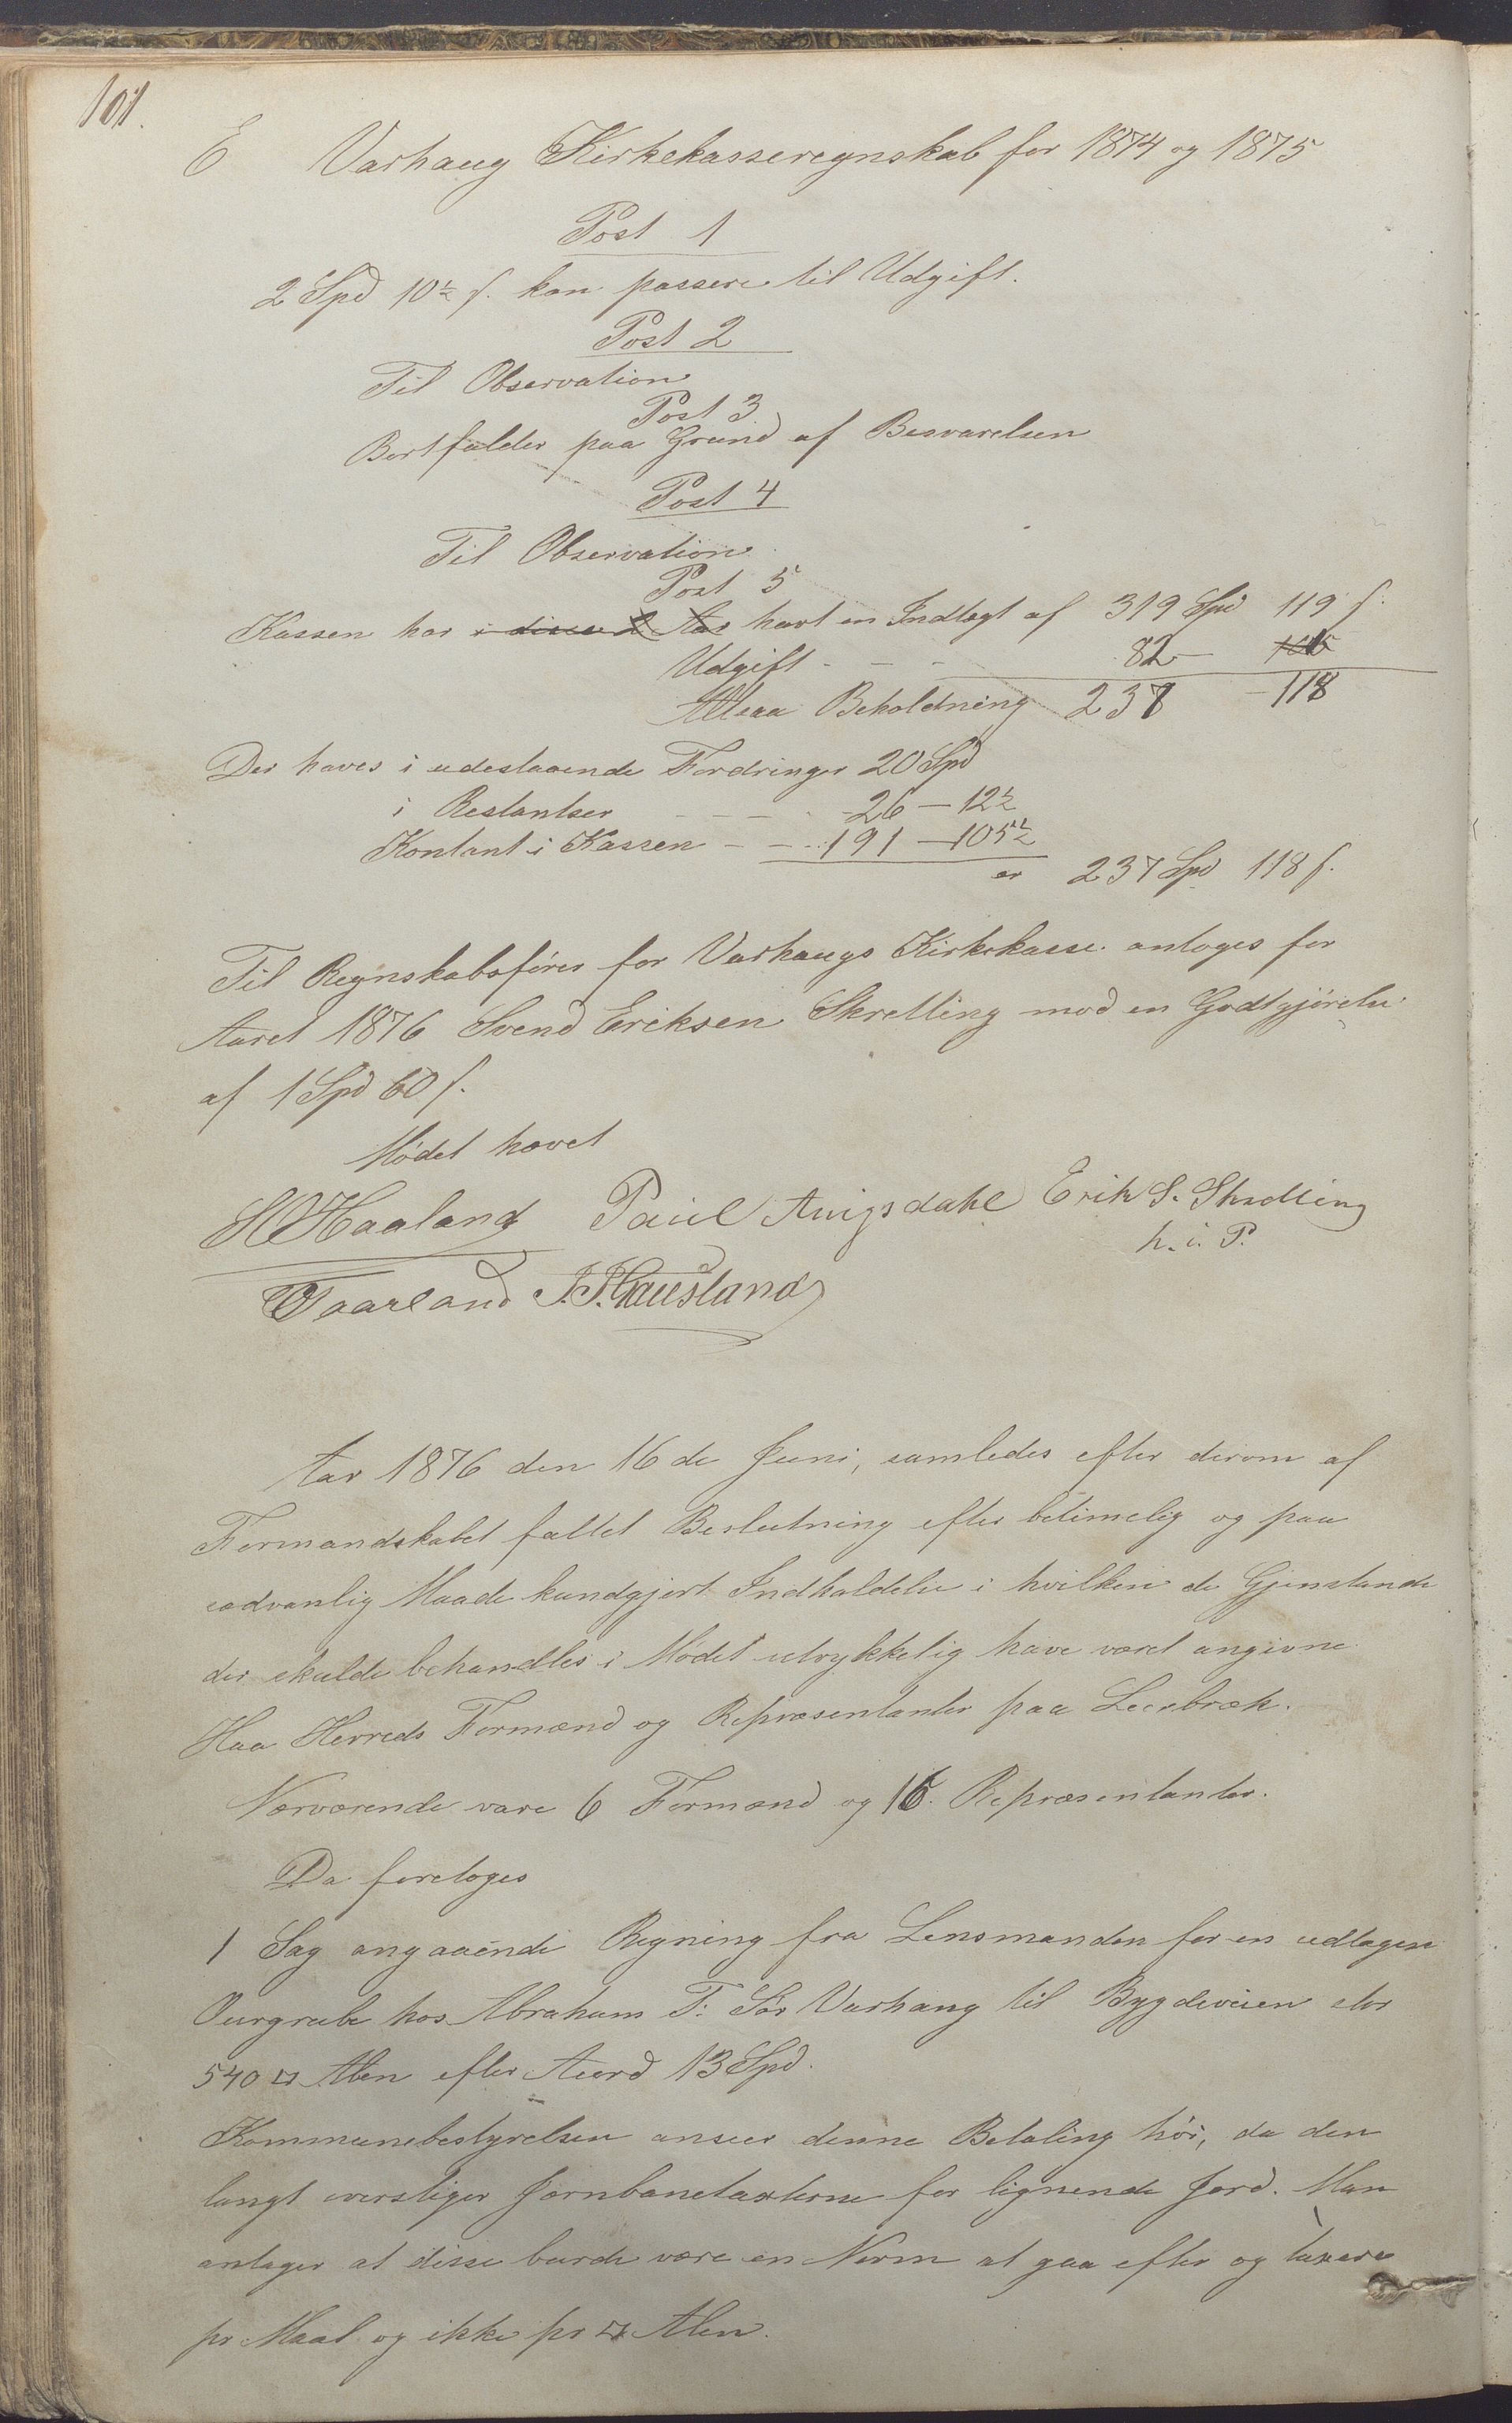 101.
E Varhaug Kirkekasseregnskab for 1874 og 1875
Post 1
2 Spd 10½ ſ. kan passere til Udgift.
Post 2
Til Observation
Post 3
Bortfalder paa Grund af Besvarelsen
Post 4
Til Observation
Post 5
Kassen har i disse 2 Aar havt en Indtægt af 319 Spd 119 ſ.
Udgift - - - 82 —
Altsaa Beholdning 237 — 118
Der haves i udestaaende Fordringer 20 Spd
i Restantser - - - 26 — 12½
Kontant i Kassen - - 191 — 105½
er 237 Spd 118 ſ.
Til Regnskabsfører for Varhaugs Kirkekasse antoges for
Aaret 1876 Svend Eriksen Skretting mod en Godtgjørelse
af 1 Spd 60 ſ.
Mødet hævet
H O Haaland Paul Auigsdahl Erik S. Skretting
h. i. P.
O Taarland J. J. Gausland
Aar 1876 den 16de Juni, samledes efter derom af
Formandskabet fattet Beslutning efter betimelig og paa
sædvanlig Maade kundgjort Indkaldelse i hvilken de Gjenstande
der skulde behandles i Mødet udtrykkelig have været angivne
Haa Herreds Formænd og Repræsentanter paa Leerbræk.
Nærværende vare 6 Formænd og 16. Repræsentanter.
Da foretoges
1 Sag angaaende Regning fra Lensmanden for en udtagen
Ourgrube hos Abraham T: Sør Varhaug til Bygdeveien stor
540 □ Alen efter Accord 13 Spd.
Kommunebestyrelsen anseer denne Betaling høi, da den
langt overstiger Jernbanetaxterne for lignende Jord. Man
antager at disse burde være en Norm at gaa efter og taxere
pr Maal og ikke pr □ Alen.